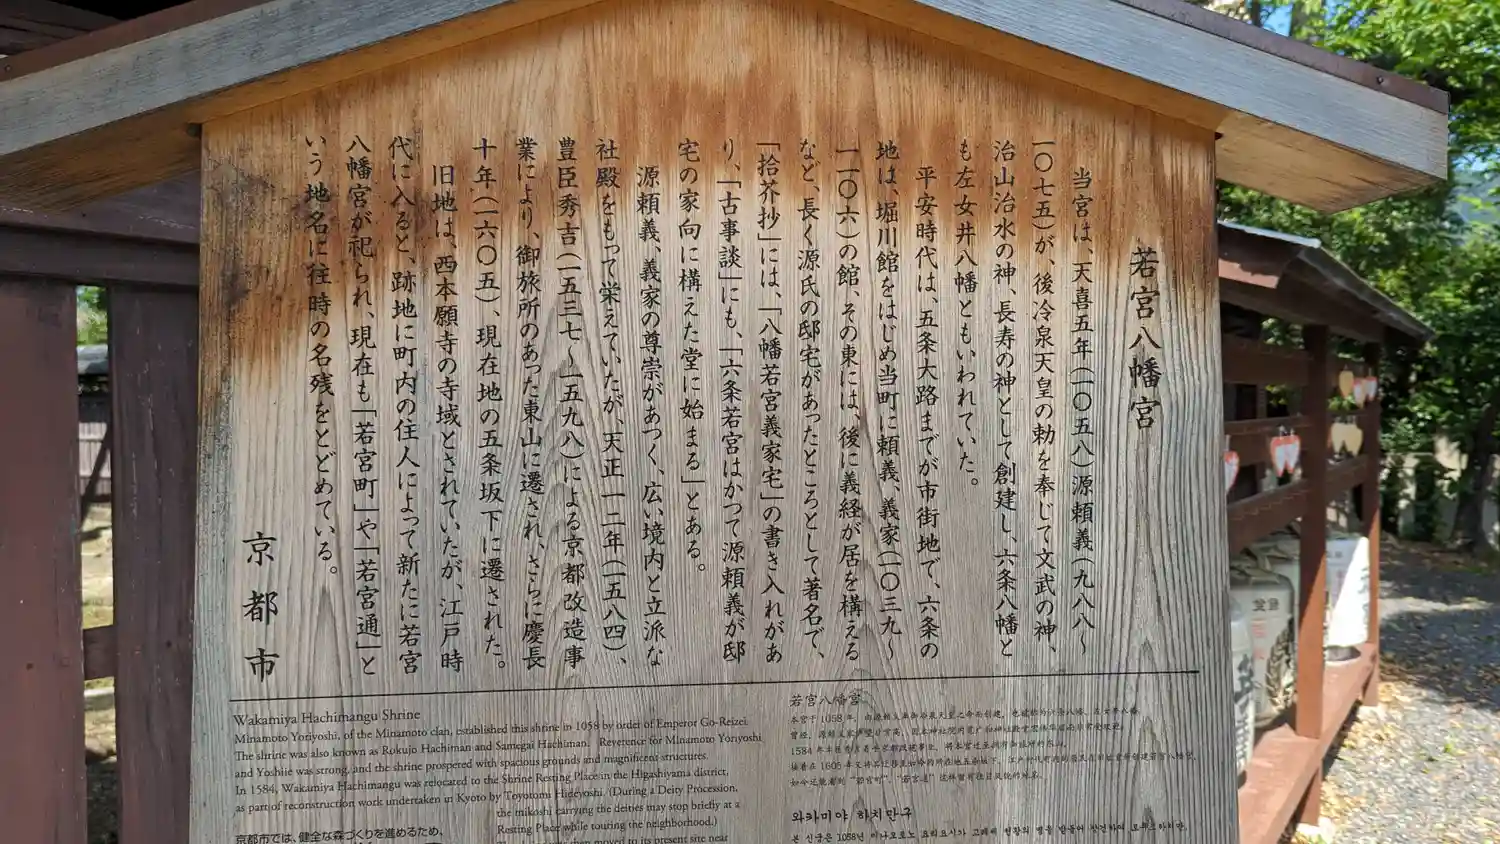 若宮八幡宮
当宮は、天喜五年(一〇五八)源頼義(九八八～
一〇七五)が、後冷泉天皇の勅を奉じて文武の神、
治山治水の神、長寿の神として創建し、六条八幡と
も左女井八幡ともいわれていた。
平安時代は、五条大路までが市街地で、六条の
地は、堀川館をはじめ当町に頼義、義家(一〇三九～
一一〇六)の館、その東には、後に義経が居を構える
など、長く源氏の邸宅があったところとして著名で、
「拾芥抄」には、「八幡若宮義家宅」の書き入れがあ
り、「古事談」にも、「六条若宮はかつて源頼義が邸
宅の家向に構えた堂に始まる」とある。
源頼義、義家の尊崇があつく、広い境内と立派な
社殿をもって栄えていたが、天正一二年(一五八四)、
豊臣秀吉(一五三七～一五九八)による京都改造事
業により、御旅所のあった東山に遷され、さらに慶長
十年(一六〇五)、現在地の五条坂下に遷された。
旧地は、西本願寺の寺域とされていたが、江戸時
代に入ると、跡地に町内の住人によって新たに若宮
八幡宮が祀られ、現在も「若宮町」や「若宮通」と
いう地名に往時の名残をとどめている。
京都市
Wakamiya Hachimangu Shrine
Minamoto Yoriyoshi, of the Minamoto clan, established this shrine in 1058 by order of Emperor Go-Reizei.
The shrine was also known as Rokujo Hachiman and Samegai Hachiman. Reverence for Minamoto Yoriyoshi
and Yoshiie was strong, and the shrine prospered with spacious grounds and magnificent structures.
In 1584, Wakamiya Hachimangu was relocated to the Shrine Resting Place in the Higashiyama district,
as part of reconstruction work undertaken in Kyoto by Toyotomi Hideyoshi. (During a Deity Procession,
the mikoshi carrying the deities may stop briefly at a
Resting Place while touring the neighborhood.)
then moved to its present site near
京都市では、健全な森づくりを進めるため、
若宮八幡宮
와카미야 하치만구